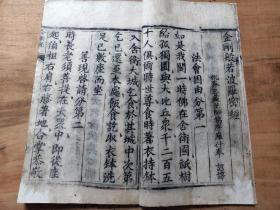 金剛般若波羅蜜經
姚秦三藏法師鳩摩羅什奉 詔譯
法會因由分第一
如是我聞一時佛在舍衛國祇樹
給孤獨園與大比丘眾千二百五
十人俱爾時世尊食時著衣持鉢
入舍衛大城乞食於其城中次第
乞已還至本處飯食訖收衣鉢洗
足已敷座而坐
善現啓請分第二
時長老須菩提在大眾中即從座
起偏袒右肩右膝著地合掌恭敬